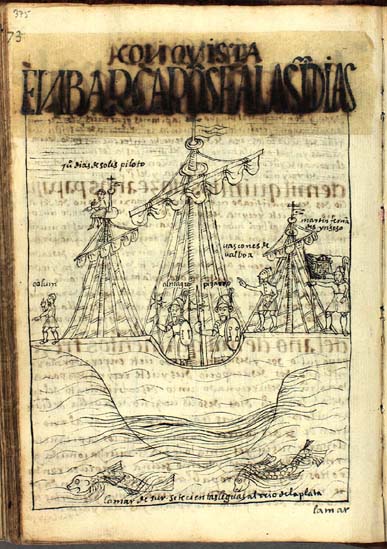 375
73
CONQVISTA
ENBARCAROSEALASINDIAS
ju dias de solis piloto
martin ferna
des ynseso
uascones de
ualboa
colum
almagro pizarro
la mar de sur setecientas leguas al rrio de la plata
la mar